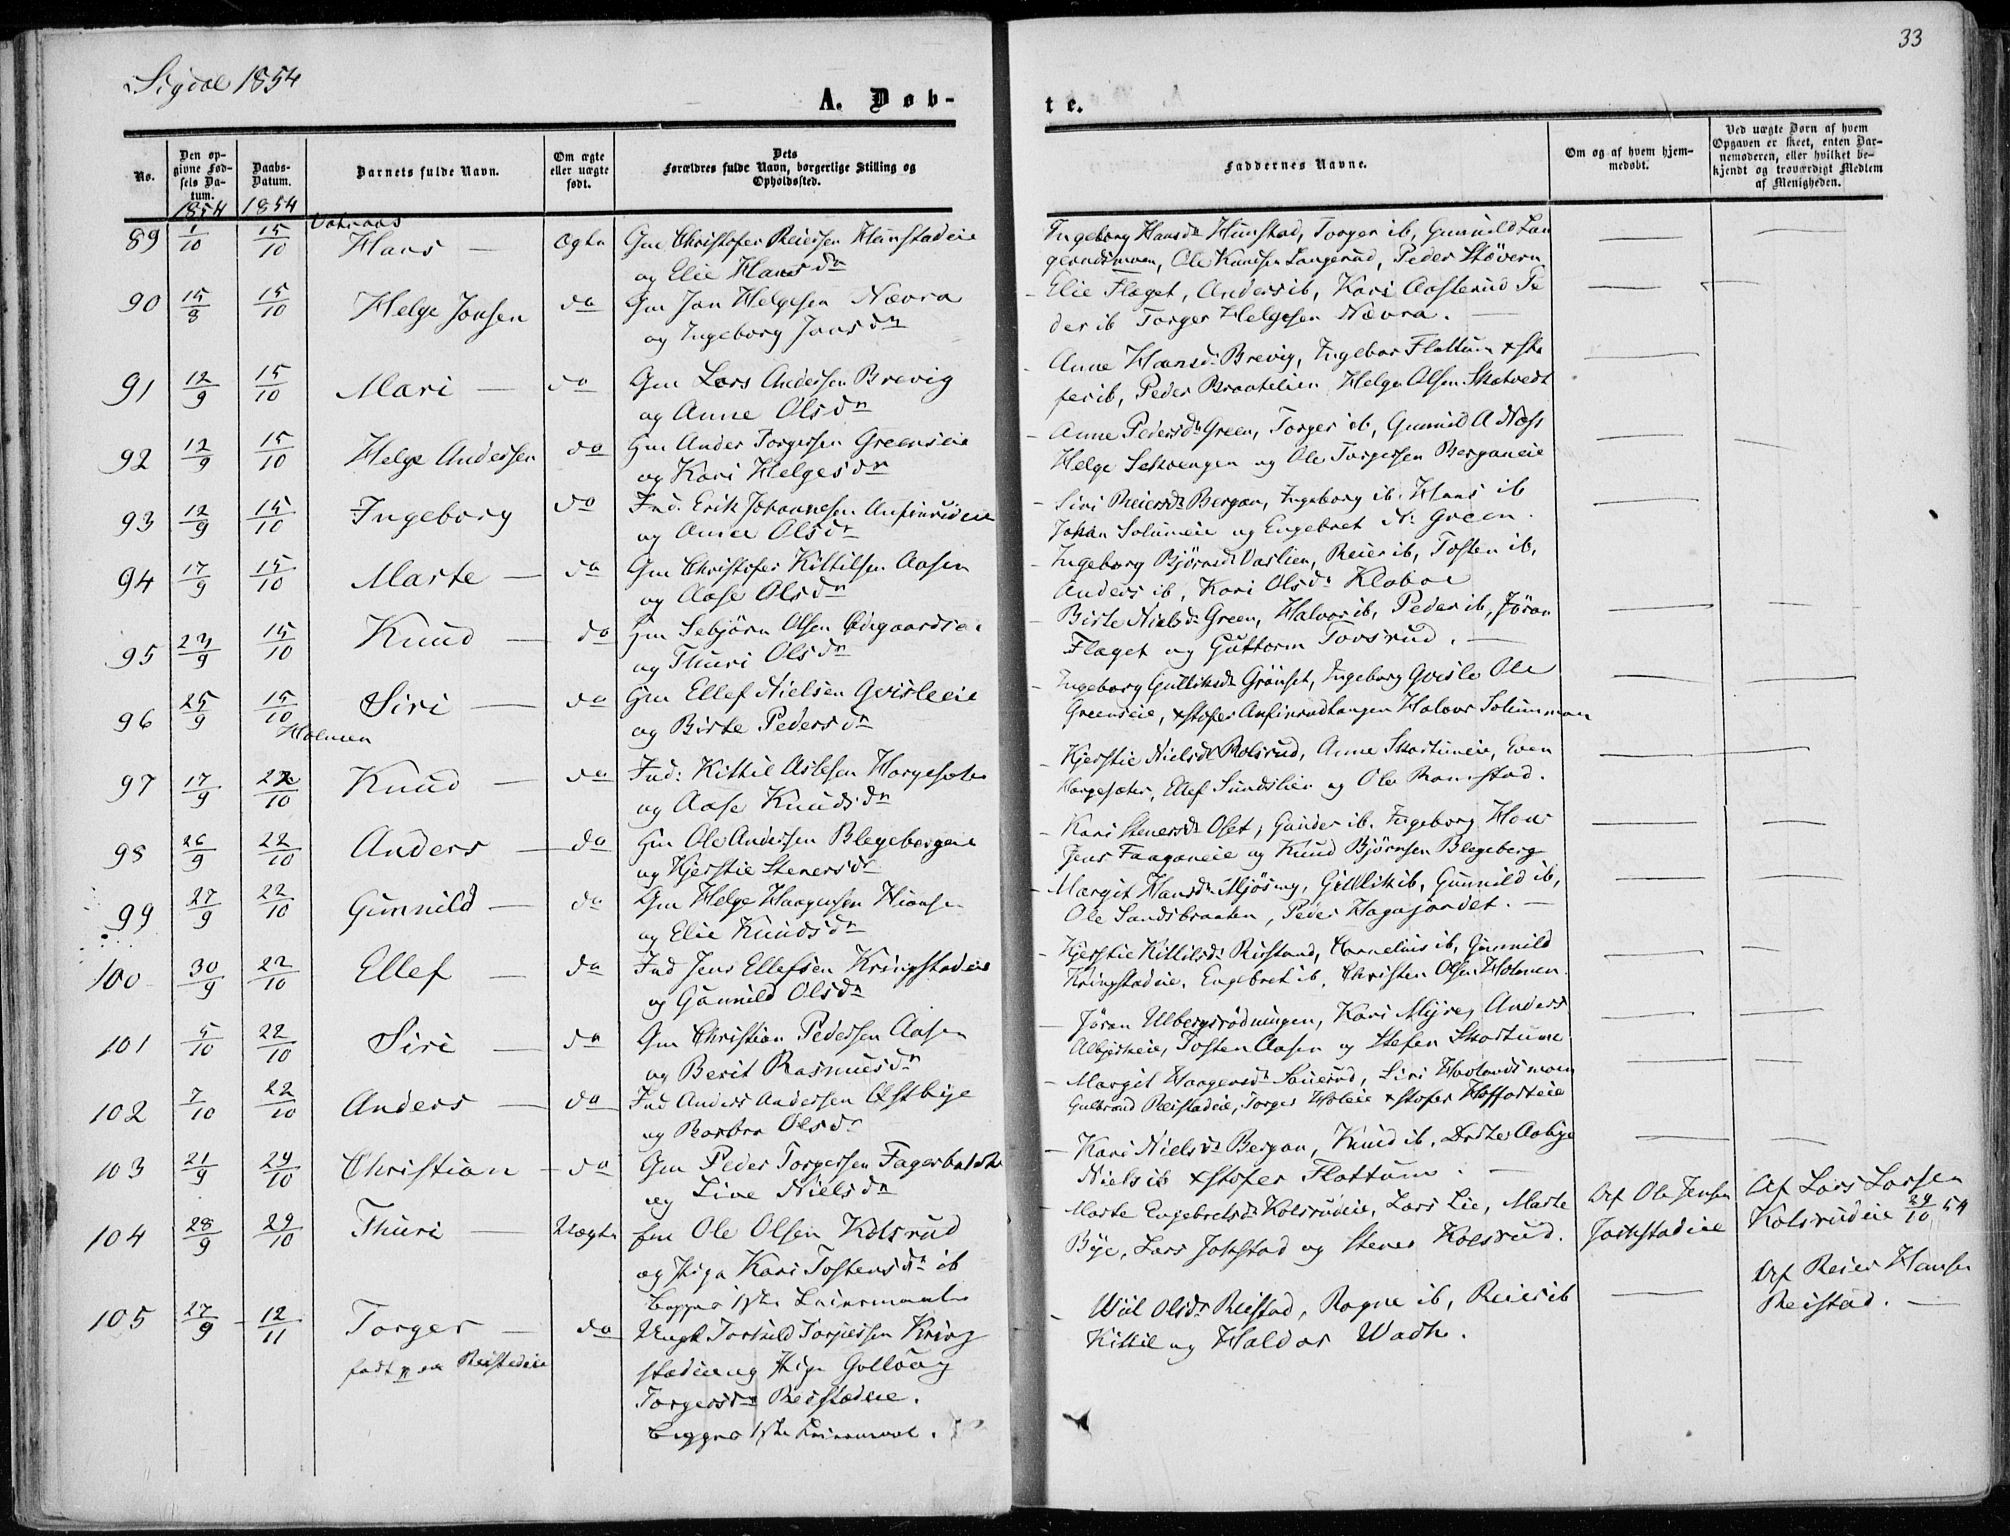 33
Sigdal 1854
A. Døb-
te.
No.
Den op-
givne Fød-
sels Da-
tum.
1854
Daabs-
Datum.
1854
Barnets fulde Navn.
Om ægte
eller uægte
født.
Dets
Forældres fulde Navn, borgerlige Stilling og
Opholdssted.
Faddernes Navne.
Om og af hvem hjem-
medøbt.
Ved uægte Børn af hvem
Opgaven er skeet, enten Bar-
nemoderen, eller hvilket be-
kjendt og troværdigt Medlem
af Menigheden.
89 1/10 15/10 Hans — Ægte Gm Christofer Reiersen Hunstadeie
og Elie Hansdr
Ingeborg Hansdr Hunstad, Torger ib, Gunnild Lan
gerudsmoen, Ole Knudsen Langerud, Peder Støvern
90 15/8 15/10 Helge Jonsen do Gm Jon Helgesen Nævra
og Ingeborg Jonsdr
Elie Flaget, Anders ib, Kari Aasterud Pe
der ib Torger Helgesen Nævra. —
91 12/9 15/10 Mari — do Gm Lars Andersen Brevig
og Anne Olsdr
Anne Hansdr Brevig, Ingebor Flattum +sto
fer ib, Peder Braatelien Helge Olsen Skatvedt
92 12/9 15/10 Helge Andersen do Gm Ander Torgersen Greenseie
og Kari Helgesdr
Anne Pedersdr Green, Torger ib, Gunnild A Næss
Helge og Ole Torgersen Berganeie
93 12/9 15/10 Ingeborg do Ind. Erik Johannesen Anfinrudeie
og Anne Olsdr
Siri Reiersdr Bergan, Ingeborg ib. Hans ib
Johan Solumeie og Engebret N. Green.
94 17/9 15/10 Marte — do Gm Christofer Kittilsen Aasen
og Aase Olsdr
Ingeborg Bjørnsdr Vaslien, Reier ib, Tosten ib,
Anders ib, Kari Olsdr Kloboe
95 24/9 15/10 Knud — do Gm Sebjørn Olsen
og Thuri Olsdr
Birte Nielsdr Green, Halvor ib, Peder ib, Jøran
Flaget og Guttorm Tovsrud. —
96 25/9 15/10 Siri — do Gm Ellef Nielsen Gvisleeie
og Birte Pedersdr
Ingeborg Gulliksdr Grønset, Ingeborg Gvisle Ole
Greenseie, +stofer Anfinrudtangen Halvor Solummoen
Holmen
97 17/9 22/10 Knud — do Ind: Kittil Aslesen Horgesæter
og Aase Knudsdr
Kjerstie Nielsdr Rolsrud, Anne Skartumeie, Even
Horgesæter, Ellef Sundslien og Ole Ramstad.
98 26/9 22/10 Anders — do Gm Ole Andersen Blegebergeie
og Kjerstie Stenersdr
Kari Stenersdr Oset, Gunder ib. Ingeborg Hovr
Jens Faaganeie og Knud Bjørnsen Blegeberg
99 27/9 22/10 Gunnild — do Gm Helge Haagensen
og Elie Knudsdr
Margit Hansdr Mjøsing, Gullik ib, Gunnild ib,
Ole Sandsbraaten, Peder Hagajordet. —
100 30/9 22/10 Ellef — do Ind Jens Ellefsen Kringstadeie
og Gunnild Olsdr
Kjerstie Kittilsdr Ristand, Cornelius ib, Gunnild
Kringstadeie, Engebret ib, Christen Olsen Holmen.
101 5/10 22/10 Siri — do Gm Christian Pedersen Aasen
og Berit Rasmusdr
Jøran Ulbergsrødningen, Kari Myre, Anders
Albjerkeie, Tosten Aasen og Stefen Skartum
102 7/10 22/10 Anders — do Ind Anders Andersen Østbye
og Barbra Olsdr
Margit Haagensdr Souerud, Siri Hovlandsmoen
Gulbrand Reistadeie, Torger Holeie +stofer Hoffarteie
103 21/9 29/10 Christian — do Gm Peder Torgersen
og Live Nielsdr
Kari Nielsdr Bergan, Knud ib, Dorte Aabye
Niels ib +stofer Flattum. —
104 28/9 29/10 Thuri — Uægte fm Ole Olsen Kolsrud
og Pige Kari Tostensdr ib
begges 1ste Leiermaal
Marte Engebretsdr Kolsrudeie, Lars Lie, Marte
Bye, Lars Jokstad og Stener Kolsrud.
Af Ole Jensen
Jokstadeie
Af Lars Larsen
Kolsrudeie 29/10 54
105 27/9 12/11 Torger — do Ungk Torkild Torjersen Kring
stadeie og Pige Gollaug
Torgersdr Reistadeie.
begges 1ste Leiermaal.
født paa Reistadeie
Olsdr Reistad, Ragne ib, Reier ib
Kittil og Haldor Wadh.
Af Reier Hansen
Reistad. —